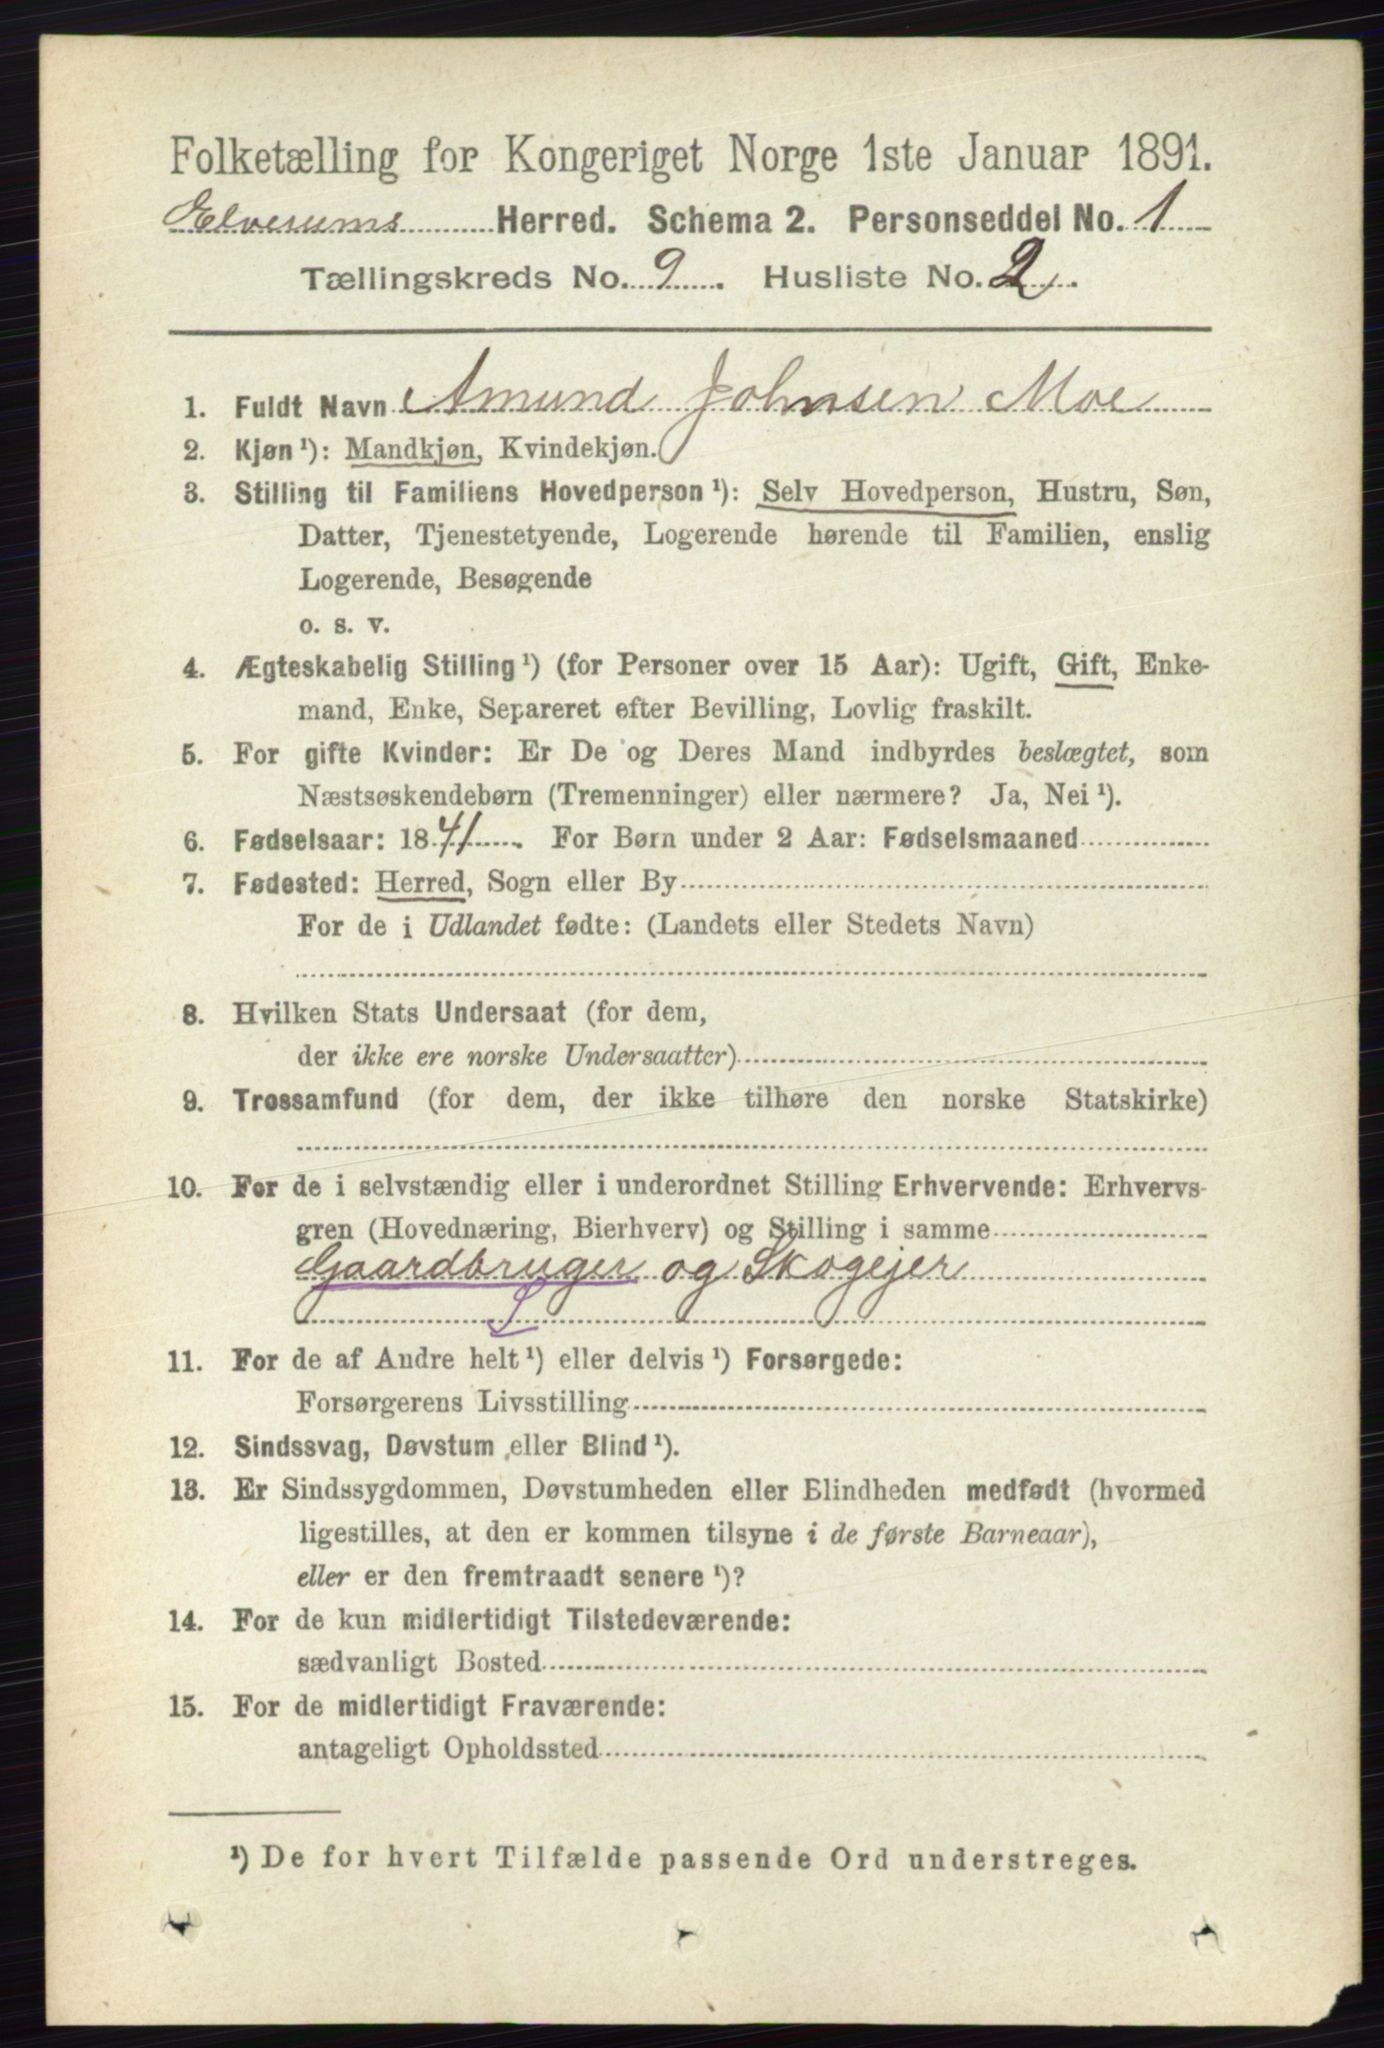 Folketælling for Kongeriget Norge 1ste Januar 1891.
Elverums Herred. Schema 2. Personseddel No. 1
Tællingskreds No. 9. Husliste No. 2.
1. Fuldt Navn Amund Johnsen Moe
2. Kjøn¹): Mandkjøn, Kvindekjøn.
3. Stilling til Familiens Hovedperson¹): Selv Hovedperson, Hustru, Søn,
Datter, Tjenestetyende, Logerende hørende til Familien, enslig
Logerende, Besøgende
o. s. v.
4. Ægteskabelig Stilling¹) (for Personer over 15 Aar): Ugift, Gift, Enke-
mand, Enke, Separeret efter Bevilling, Lovlig fraskilt.
5. For gifte Kvinder: Er De og Deres Mand indbyrdes beslægtet, som
Næstsøskendebørn (Tremenninger) eller nærmere? Ja, Nei¹).
6. Fødselsaar: 1841. For Børn under 2 Aar: Fødselsmaaned
7. Fødested: Herred, Sogn eller By
For de i Udlandet fødte: (Landets eller Stedets Navn)
8. Hvilken Stats Undersaat (for dem,
der ikke ere norske Undersaatter)
9. Trossamfund (for dem, der ikke tilhøre den norske Statskirke)
10. For de i selvstændig eller i underordnet Stilling Erhvervende: Erhvervs-
gren (Hovednæring, Bierhverv) og Stilling i samme
Gaardbruger og Skogejer
S
11. For de af Andre helt¹) eller delvis¹) Forsørgede:
Forsørgerens Livsstilling
12. Sindssvag, Døvstum eller Blind¹).
13. Er Sindssygdommen, Døvstumheden eller Blindheden medfødt (hvormed
ligestilles, at den er kommen tilsyne i de første Barneaar),
eller er den fremtraadt senere¹)?
14. For de kun midlertidigt Tilstedeværende:
sædvanligt Bosted
15. For de midlertidigt Fraværende:
antageligt Opholdssted
¹) De for hvert Tilfælde passende Ord understreges.